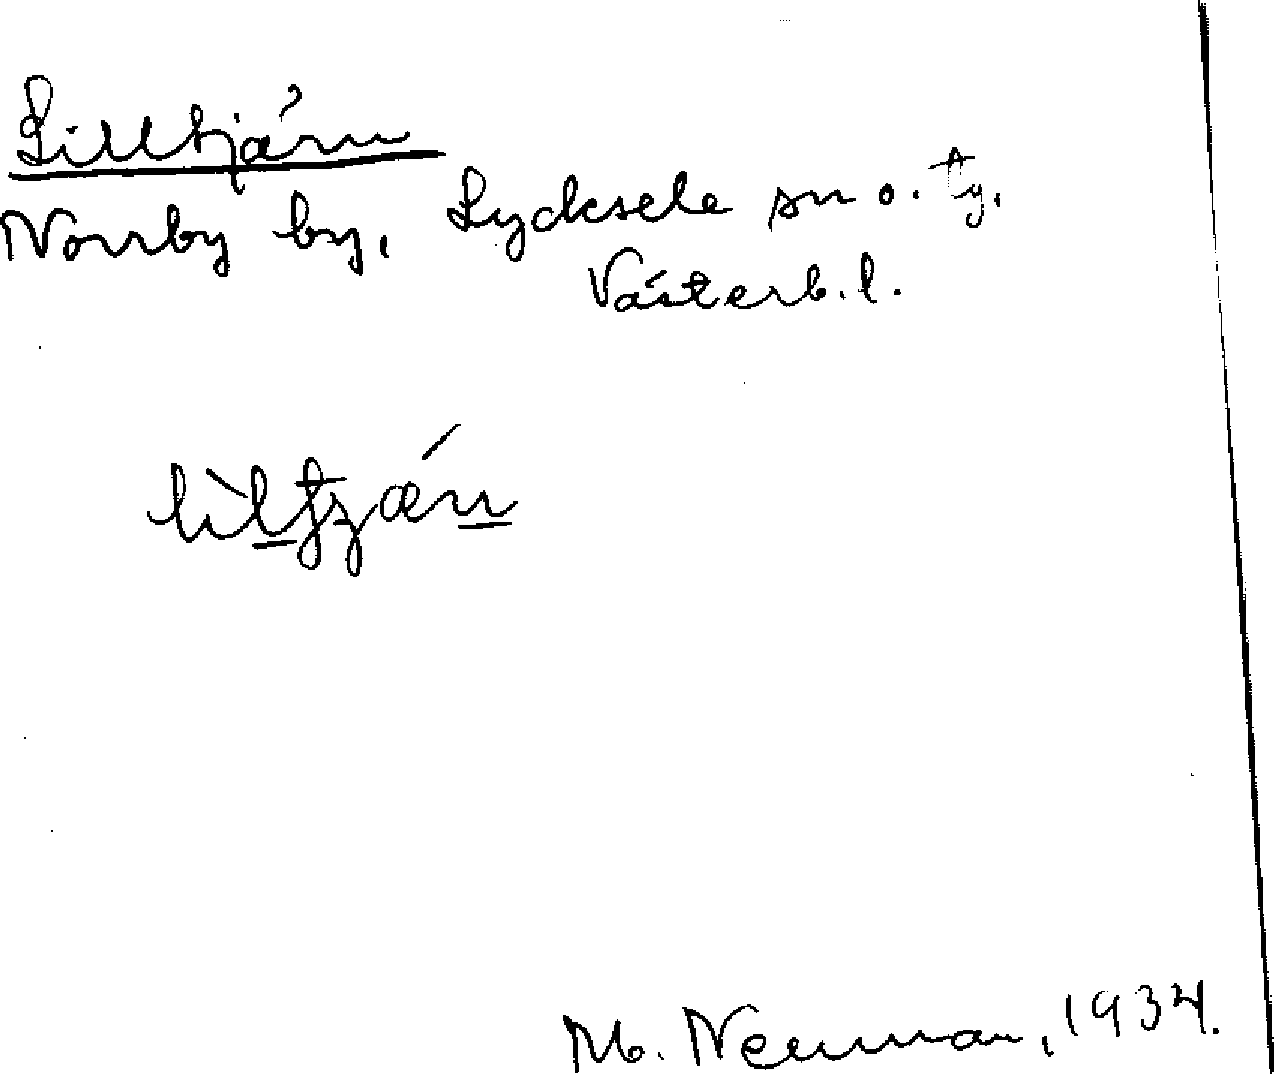 Lilltjärn
Norrby by, Lycksele sn o. tg.
Västerb. l.
M. Neuman, 1934.